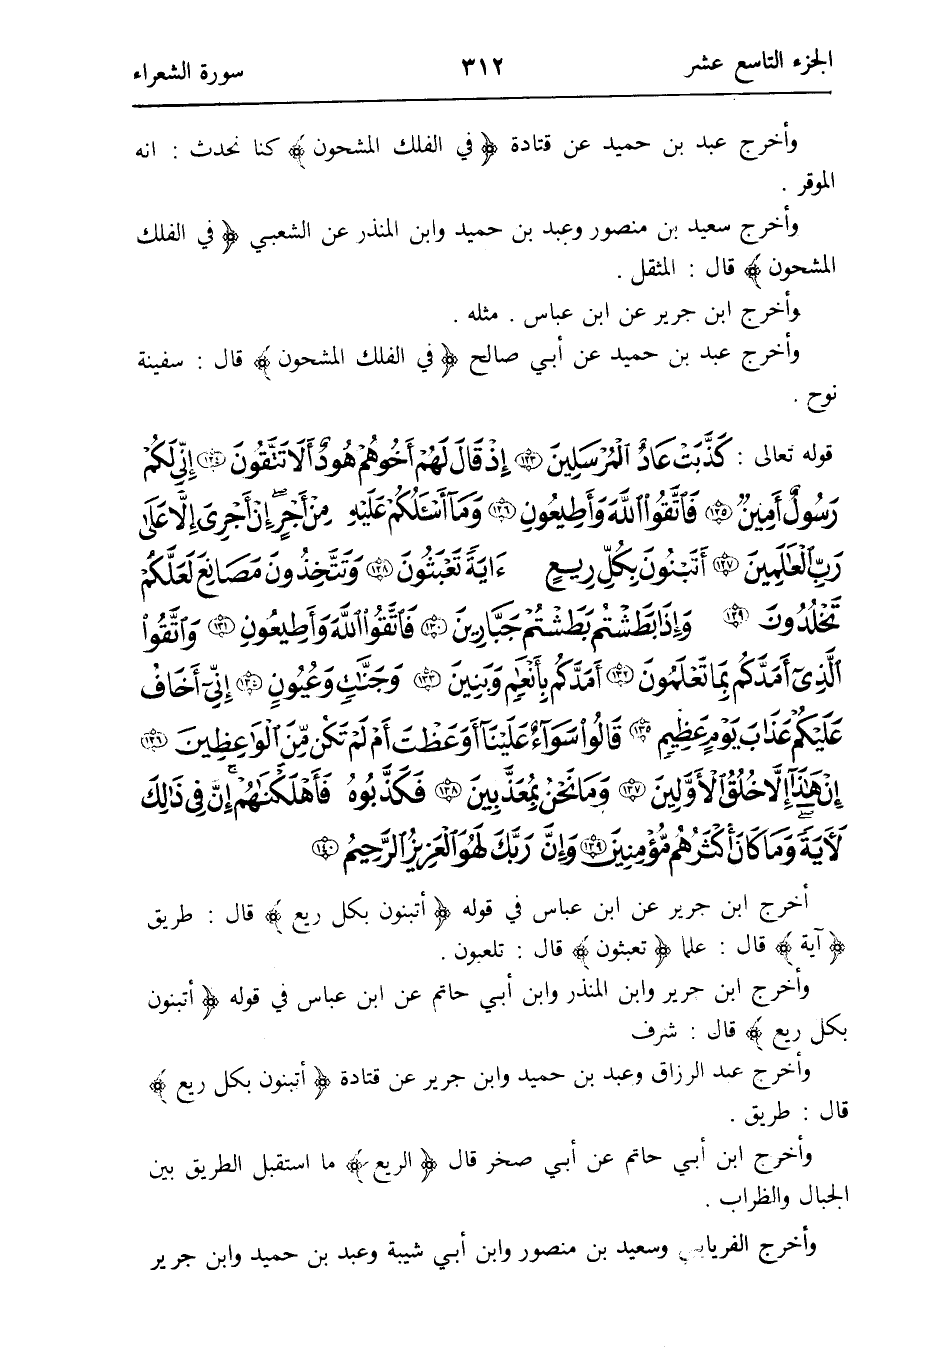 الجزء التاسع عشر ٣١٢ سورة الشعراء
وأخرج عبد بن حميد عن قتادة ﴿ في الفلك المشحون ﴾ كنا نحدث : انه
الموقر .
وأخرج سعيد بن منصور وعبد بن حميد وابن المنذر عن الشعبي ﴿ في الفلك
المشحون ﴾ قال : المثقل .
وأخرج ابن جرير عن ابن عباس . مثله .
وأخرج عبد بن حميد عن أبي صالح ﴿ في الفلك المشحون ﴾ قال : سفينة
نوح .
قوله تعالى : كَذَّبَتْ عَادٌ ٱلْمُرْسَلِينَ ﴿١٢٣﴾ إِذْ قَالَ لَهُمْ أَخُوهُمْ هُودٌ أَلَا تَتَّقُونَ ﴿١٢٤﴾ إِنِّي لَكُمْ
رَسُولٌ أَمِينٌ ﴿١٢٥﴾ فَٱتَّقُوا۟ ٱللَّهَ وَأَطِيعُونِ ﴿١٢٦﴾ وَمَآ أَسْـَٔلُكُمْ عَلَيْهِ مِنْ أَجْرٍ إِنْ أَجْرِىَ إِلَّا عَلَىٰ
رَبِّ ٱلْعَـٰلَمِينَ ﴿١٢٧﴾ أَتَبْنُونَ بِكُلِّ رِيعٍ ءَايَةً تَعْبَثُونَ ﴿١٢٨﴾ وَتَتَّخِذُونَ مَصَانِعَ لَعَلَّكُمْ
تَخْلُدُونَ ﴿١٢٩﴾ وَإِذَا بَطَشْتُم بَطَشْتُمْ جَبَّارِينَ ﴿١٣٠﴾ فَٱتَّقُوا۟ ٱللَّهَ وَأَطِيعُونِ ﴿١٣١﴾ وَٱتَّقُوا۟
ٱلَّذِىٓ أَمَدَّكُم بِمَا تَعْلَمُونَ ﴿١٣٢﴾ أَمَدَّكُم بِأَنْعَـٰمٍ وَبَنِينَ ﴿١٣٣﴾ وَجَنَّـٰتٍ وَعُيُونٍ ﴿١٣٤﴾ إِنِّىٓ أَخَافُ
عَلَيْكُمْ عَذَابَ يَوْمٍ عَظِيمٍ ﴿١٣٥﴾ قَالُوا۟ سَوَآءٌ عَلَيْنَآ أَوَعَظْتَ أَمْ لَمْ تَكُن مِّنَ ٱلْوَٰعِظِينَ ﴿١٣٦﴾
إِنْ هَـٰذَآ إِلَّا خُلُقُ ٱلْأَوَّلِينَ ﴿١٣٧﴾ وَمَا نَحْنُ بِمُعَذَّبِينَ ﴿١٣٨﴾ فَكَذَّبُوهُ فَأَهْلَكْنَـٰهُمْ إِنَّ فِى ذَٰلِكَ
لَـَٔايَةً وَمَا كَانَ أَكْثَرُهُم مُّؤْمِنِينَ ﴿١٣٩﴾ وَإِنَّ رَبَّكَ لَهُوَ ٱلْعَزِيزُ ٱلرَّحِيمُ ﴿١٤٠﴾
أخرج ابن جرير عن ابن عباس في قوله ﴿ أتبنون بكل ريع ﴾ قال : طريق
﴿ آية ﴾ قال : علما ﴿ تعبثون ﴾ قال : تلعبون .
وأخرج ابن جرير وابن المنذر وابن أبي حاتم عن ابن عباس في قوله ﴿ أتبنون
بكل ريع ﴾ قال : شرف
وأخرج عبد الرزاق وعبد بن حميد وابن جرير عن قتادة ﴿ أتبنون بكل ريع ﴾
قال : طريق .
وأخرج ابن أبي حاتم عن أبي صخر قال ﴿ الريع ﴾ ما استقبل الطريق بين
الجبال والظراب .
وأخرج الفريابي وسعيد بن منصور وابن أبي شيبة وعبد بن حميد وابن جرير